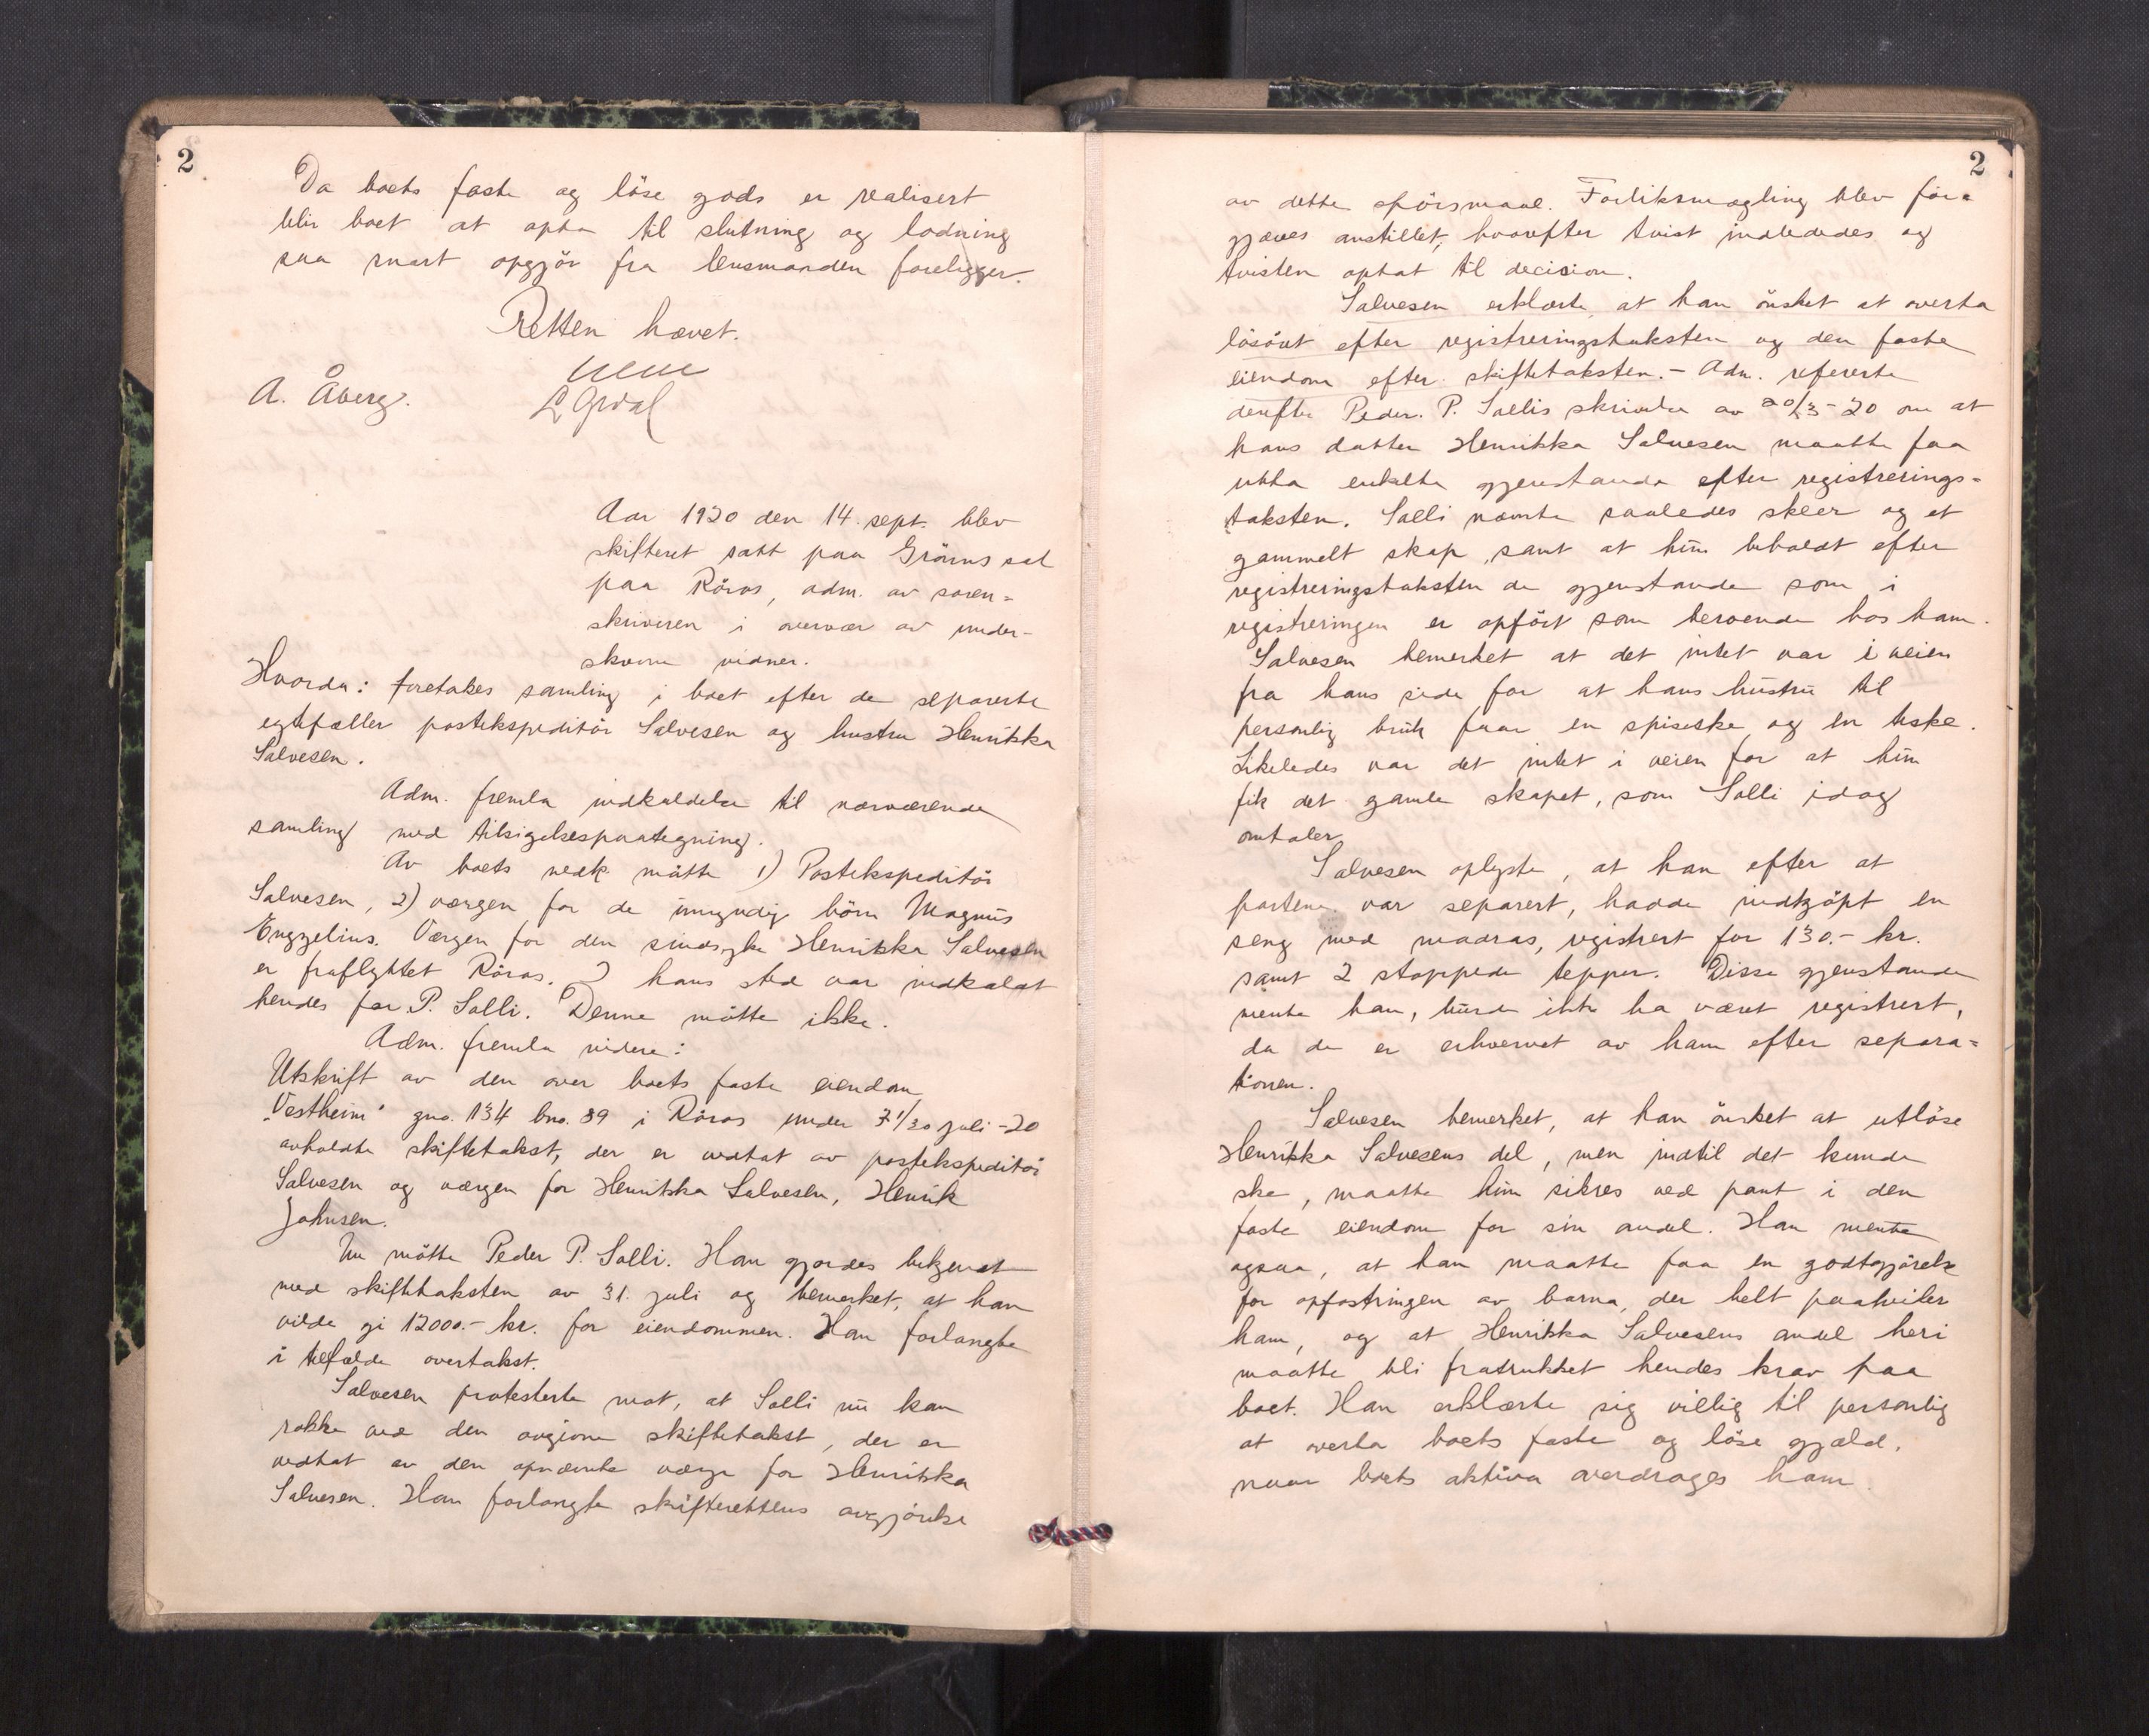 2
Da boets faste og löse gods er realisert
blir boet at opta til slutning og lodning
saa snart opgjör fra lensmanden foreligger.
Retten hævet.
A. Åberg.
Aar 1920 den 14. sept. blev
skifteret satt paa Gröms sal
paa Röros, adm. av soren-
skriveren i overvær av under-
skrevne vidner.
Hvorda: foretakes samling i boet efter de separerte
egtefæller postekspeditör Salvesen og hustru Henrikka
Salvesen.
Adm. fremla indkaldelse til nærværende
samling med tilsigelsespaategning.
Av boets vedk. mötte 1) Postekspeditör
Salvesen, 2) værgen for de umyndige börn Magnus
Engzelius. Værgen for den sindssyke Henrikka Salvesen
er fraflyttet Röros. I hans sted var indkaldt
hendes far P. Solli. Denne mötte ikke.
Adm. fremla videre:
Utskrift av den over boets faste eiendom
"Vestheim" gno. 134 bno. 89 i Röros under 31/30 juli-20
avholdte skiftetakst, der er vedtat av postekspeditör
Salvesen og værgen for Henrikka Salvesen, Henrik
Johnsen.
Nu mötte Peder P. Solli. Han gjordes bekjendt
med skiftetaksten av 31. juli og bemerket, at han
vilde gi 12000.- kr. for eiendommen. Han forlangte
i tilfælde overtakst.
Salvesen protesterte mot, at Solli nu kan
rokke ved den avgivne skiftetakst, der er
vedtat av den opnævnte værge for Henrikka
Salvesen. Han forlangte skifterettens avgjörelse
2
av dette spörsmaal. Forliksmægling blev for-
gjæves anstillet, hvorefter tvist indlededes og
tvisten optat til decision.
Salvesen erklærte, at han önsket at overta
lösöret efter registreringstaksten og den faste
eiendom efter skiftetaksten. - Adm. refererte
derefter Peder P. Sollis skrivelse av 20/3-20 om at
hans datter Henrikka Salvesen maatte faa
utta enkelte gjenstande efter registrerings-
taksten. Solli nævnte saaledes skeer og et
gammelt skap, samt at hun beholdt efter
registreringstaksten de gjenstande som i
registreringen er opfört som beroende hos ham.
Salvesen bemerket at det intet var i veien
fra hans side for at hans hustru til
personlig bruk faar en spiseske og en teske.
Likeledes var det intet i veien for at hun
fik det gamle skapet, som Solli idag
omtaler.
Salvesen oplyste, at han efter at
partene var separert, hadde indkjöpt en
seng med madras, registrert for 130.- kr.
samt 2 stoppede tepper. Disse gjenstande
mente han, burde ikke ha været registrert,
da de er erhvervet av ham efter separa-
tionen.
Salvesen bemerket, at han önsket at utlöse
Henrikka Salvesens del, men indtil det kunde
ske, maatte hun sikres ved pant i den
faste eiendom for sin andel. Han mente
ogsaa, at han maatte faa en godtgjörelse
for opfostringen av barna, der helt paahviler
ham, og at Henrikka Salvesens andel heri
maatte bli fratrukket hendes krav paa
boet. Han erklærte sig villig til personlig
at overta boets faste og löse gjæld,
naar boets aktiva overdrages ham.